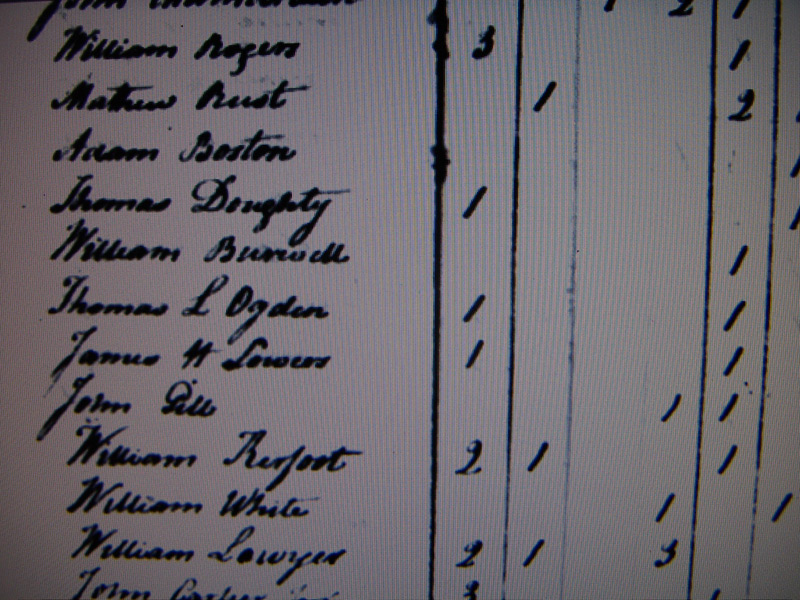 John 1 2 1
William Rogers 3 1
Mathew Rust 1 2
Adam Boston
Thomas Doughty 1
William Burwell 1
Thomas L Ogden 1 1
James H 1 1
John Gill 1 1
William Kerfoot 2 1 1
William White 1 1
William Lawyer 2 1 3
John 3 1